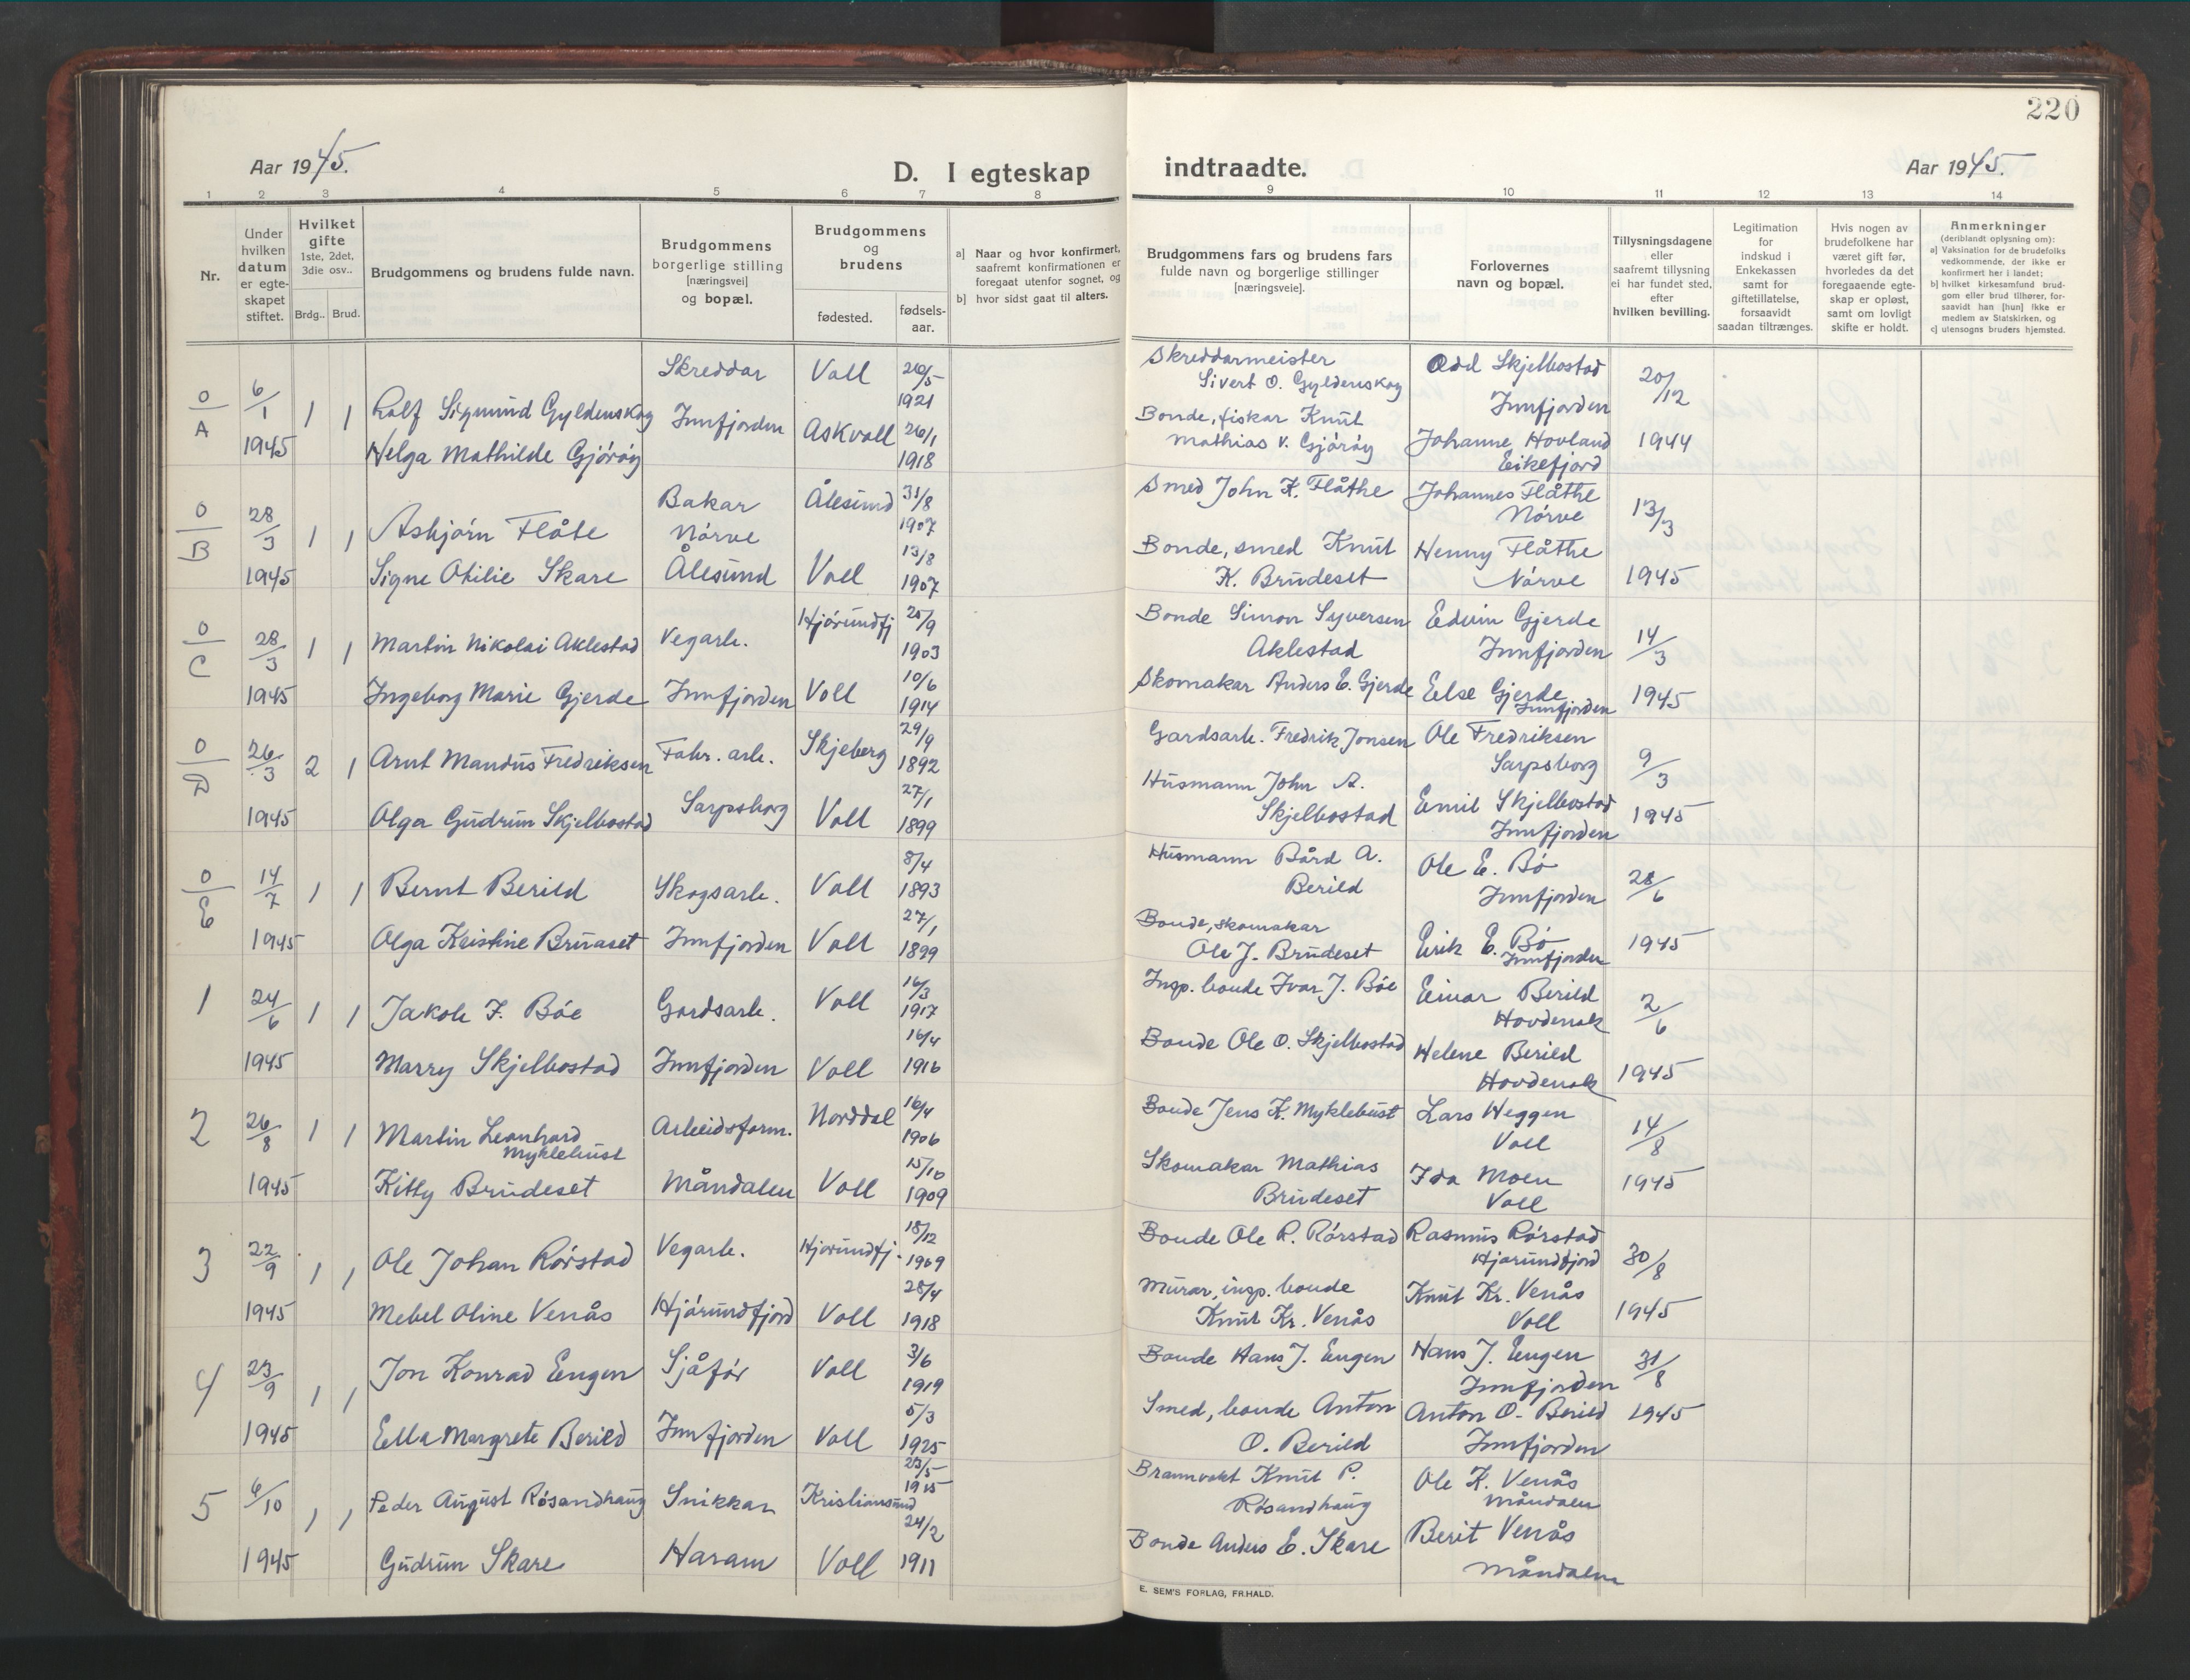 220
Aar 1945.
D. I egteskap indtraadte.
Aar 1945.
1 2 3 4 5 6 7 8 9 10 11 12 13 14
Nr.
Under hvilken datum er egte-skapet stiftet.
Hvilket gifte 1ste, 2det, 3die osv..
Brdg.. Brud.
Brudgommens og brudens fulde navn.
Brudgommens borgerlige stilling [næringsvei] og bopæl.
Brudgommens og brudens
fødested. fødsels-aar.
a] Naar og hvor konfirmert, saafremt konfirmationen er foregaat utenfor sognet, og
b] hvor sidst gaat til alters.
Brudgommens fars og brudens fars fulde navn og borgerlige stillinger [næringsveie].
Forlovernes navn og bopæl.
Tillysningsdagene eller saafremt tillysning ei har fundet sted, efter hvilken bevilling.
Legitimation for indskud i Enkekassen samt for giftetillatelse, forsaavidt saadan tiltrænges.
Hvis nogen av brudefolkene har været gift før, hvorledes da det foregaaende egte-skap er opløst, samt om lovligt skifte er holdt.
Anmerkninger (deriblandt oplysning om):
a] Vaksination for de brudefolks vedkommende, der ikke er konfirmert her i landet;
b] hvilket kirkesamfund brud-gom eller brud tilhører, for-saavidt han [hun] ikke er medlem av Statskirken, og
c] utensogns bruders hjemsted.
0/A 6/1 1945 1 1 Rolf Sigmund Gyldenskog Skreddar Innfjorden Voll 26/5 1921 Skreddarmeister Sivert O. Gyldenskog Odd Skjelbostad Innfjorden 20/12 1944
Helga Mathilde Gjörøy Askvoll 26/1 1918 Bonde, fiskar Knut Mathias V. Gjörøy Johanne Hovland Eikefjord
0/B 28/3 1945 1 1 Asbjørn Flåte Bakar Nørve Ålesund Ålesund 31/8 1907 Smed John K. Flåthe Johannes Flåthe Nørve 13/3 1945
Signe Otilie Skare Voll 13/8 1907 Bonde, smed Knut K. Brudeset Henny Flåthe Nørve
0/C 28/3 1945 1 1 Martin Nikolai Aklestad Vegarb. Innfjorden Hjørundfj 20/9 1903 Bonde Simon Syversen Aklestad Edvin Gjerde Innfjorden 14/3 1945
Ingeborg Marie Gjerde Voll 10/6 1914 Skomakar Anders E. Gjerde Else Gjerde Innfjorden
0/D 26/3 1945 2 1 Arnt Mandus Fredriksen Fabr. arb. Sarpsborg Skjeberg 29/9 1892 Gardsarb. Fredrik Jonsen Ole Fredriksen Sarpsborg 9/3 1945
Olga Gudrun Skjelbostad Voll 27/1 1899 Husmann John A. Skjelbostad Emil Skjelbostad Innfjorden
0/E 14/7 1945 1 1 Bernt Berild Skogsarb. Innfjorden Voll 8/4 1893 Husmann Bård A. Berild Ole E. Bø Innfjorden 28/6 1945
Olga Kristine Bruaset Voll 27/1 1899 Bonde, skomakar Ole J. Brudeset Erik E. Bø Innfjorden
1 24/6 1945 1 1 Jakob I. Böe Gardsarb. Innfjorden Voll 16/3 1917 Insp. bonde Ivar J. Böe Einar Berild Hovdenak 2/6 1945
Marry Skjelbostad Voll 16/4 1916 Bonde Ole O. Skjelbostad Helene Berild Hovdenak
2 26/8 1945 1 1 Martin Leonhard Myklebust Arbeidsform. Måndalen Norddal 16/4 1906 Bonde Jens K. Myklebust Lars Heggen Voll 14/8 1945
Kitty Brudeset Voll 15/10 1909 Skomakar Mathias Brudeset Ida Moen Voll
3 22/9 1945 1 1 Ole Johan Rørstad Vegarb. Hjørundfjord Hjørundfj. 18/12 1909 Bonde Ole R. Rørstad Rasmus Rørstad Hjørundfjord 30/8 1945
Mebel Oline Venås Voll 28/4 1918 Murar, insp. bonde Knut Kr. Venås Knut Kr. Venås Voll
4 23/9 1945 1 1 Jon Konrad Engen Sjåför Innfjorden Voll 3/6 1919 Bonde Hans J. Engen Hans J. Engen Innfjorden 31/8 1945
Ella Margrete Berild Voll 5/3 1925 Smed, bonde Anton O. Berild Anton O. Berild Innfjorden
5 6/10 1945 1 1 Peder August Røsandhaug Snikkar Haram Kristiansund 23/5 1915 Brannvakt Knut P. Røsandhaug Ole K. Venås Måndalen
Gudrun Skare Voll 24/2 1911 Bonde Anders E. Skare Berit Venås Måndalen
E. SEM'S FORLAG, FR.HALD.